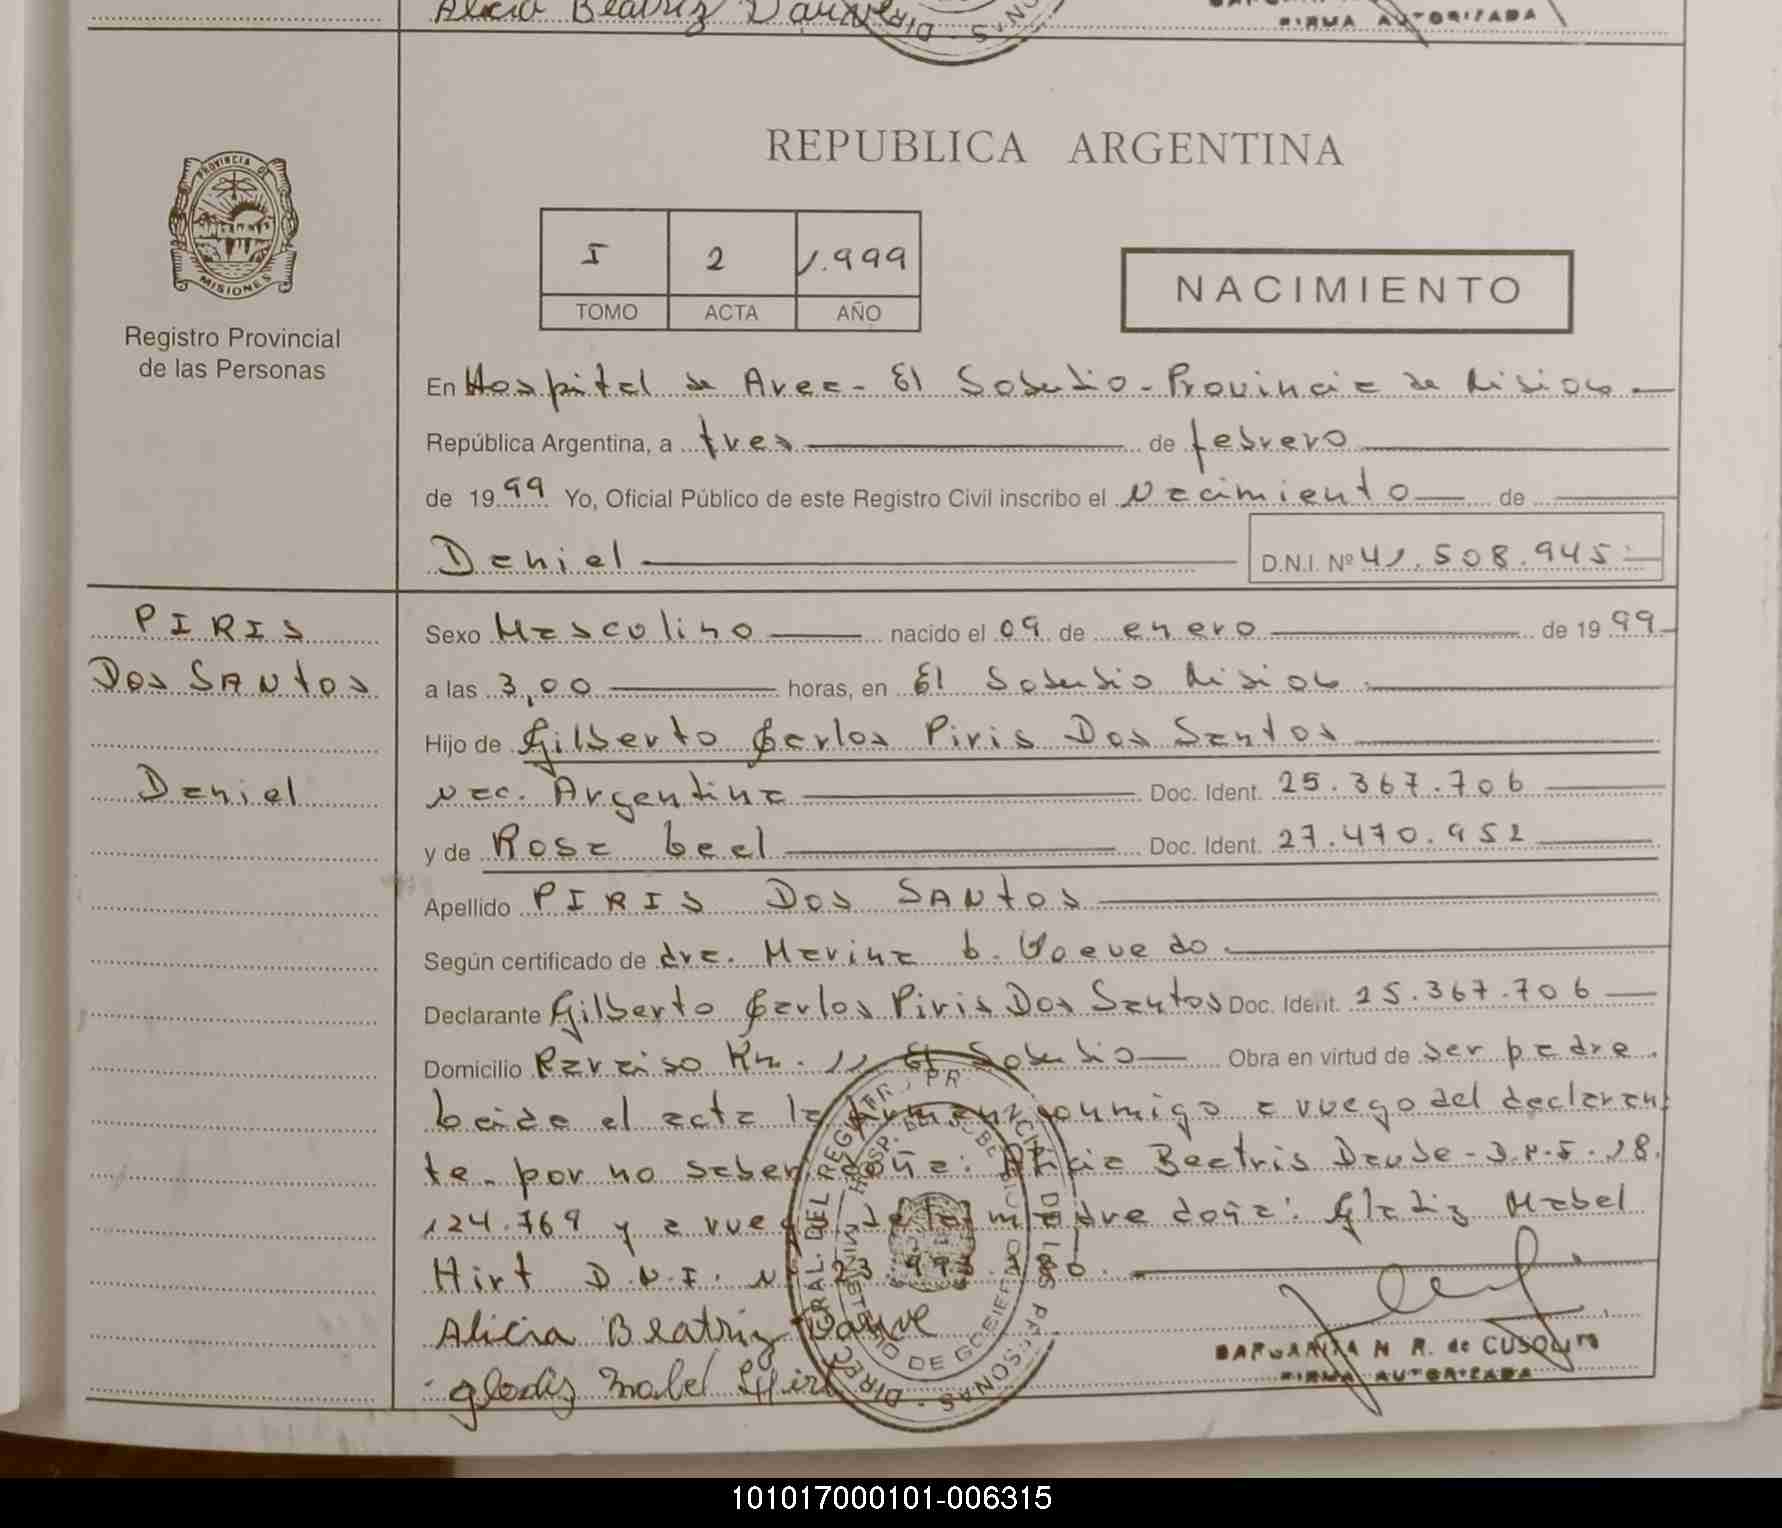 Alicia Beatriz
FIRMA AUTORIZADA
PROVINCIA DE
MISIONES
Registro Provincial
de las Personas
REPUBLICA ARGENTINA
I 2 1.999
TOMO ACTA AÑO
NACIMIENTO
En Hospital de Area - El Soberbio - Provincia de Misiones
República Argentina, a tres de febrero
de 1999 Yo, Oficial Público de este Registro Civil inscribo el nacimiento de
Daniel D.N.I. Nº 41.508.945
PIRIS
DOS SANTOS
Daniel
Sexo Masculino nacido el 09 de enero de 1999
a las 3,00 horas, en El Soberbio Misiones
Hijo de Gilberto Carlos Piris Dos Santos
nac. Argentina Doc. Ident. 25.367.706
y de Rosa Leal Doc. Ident. 27.470.952
Apellido PIRIS DOS SANTOS
Según certificado de dra. Marina
Declarante Gilberto Carlos Piris Dos Santos Doc. Ident. 25.367.706
Domicilio Paraiso Km. 11 El Soberbio Obra en virtud de ser padre.
Leida el acta la firman conmigo a ruego del declaran
te - por no saber doña: Alicia Beatris - D.N.I. 18.
124.769 y a ruego de la madre doña: Gladiz Mabel
Hirt D.N.I. Nº
Alicia Beatriz
Gladiz Mabel Hirt
MARGARITA N R. de
FIRMA AUTORIZADA
DIREC. GRAL. DEL REGISTR. PROVINCIAL DE LAS PERSONAS
MINISTERIO DE GOBIERNO
101017000101-006315